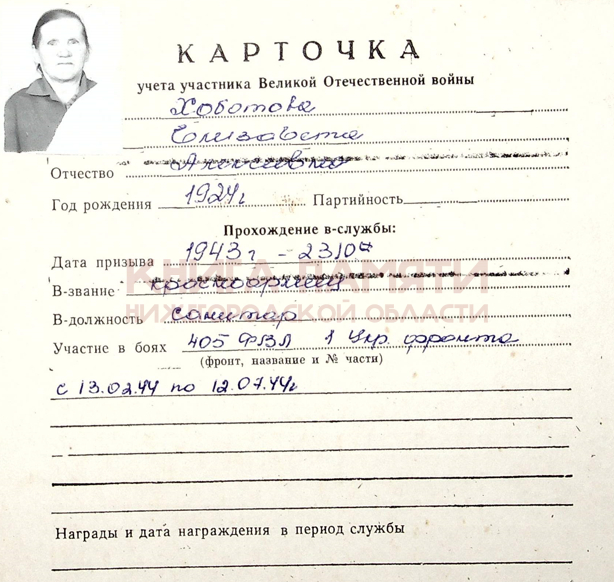 КАРТОЧКА
учета участника Великой Отечественной войны
Хоботова
Елизавета
Отчество Алексеевна
Год рождения 1924г Партийность
Прохождение в-службы:
Дата призыва 1943г - 23/07
КНИГА ПАМЯТИ
В-звание красноармеец
НИЖЕГОРОДСКОЙ ОБЛАСТИ
В-должность санитар
Участие в боях 405 ФВЛ 1 Укр. фронта
(фронт, название и № части)
с 13.02.44 по 12.07.44г
Награды и дата награждения в период службы